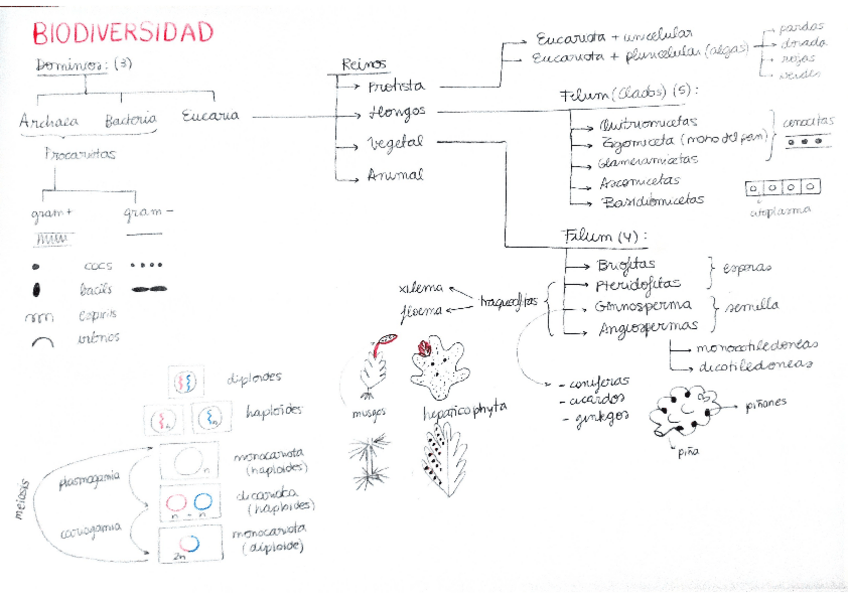 BIODIVERSIDAD
Dominios: (3)
Archaea
Bacteria
Eucaria
Procariotas
gram+
gram-
cocs
bacils
espirils
vibrios
diploides
haploides
n
n
meiosis
plasmogamia
cariogamia
monocariota
(haploides)
n
dicariota
(haploides)
n - n
monocariota
(diploide)
2n
Reinos
Protista
Hongos
Vegetal
Animal
Eucariota + unicelular
Eucariota + pluricelular (algas)
pardas
dorada
rojas
verdes
Filum (Clados) (5):
Quitriomicetas
Zigomiceta (moho del pan)
Glomeramicetas
Ascomicetas
Basidiomicetas
cenocitas
citoplasma
Filum (4):
Briofitas
Pteridofitas
Gimnosperma
Angiospermas
esporas
semilla
traqueofitas
xilema
floema
monocotiledoneas
dicotiledoneas
- coniferas
- cicardos
- ginkgos
piñones
piña
musgos
hepaticophyta